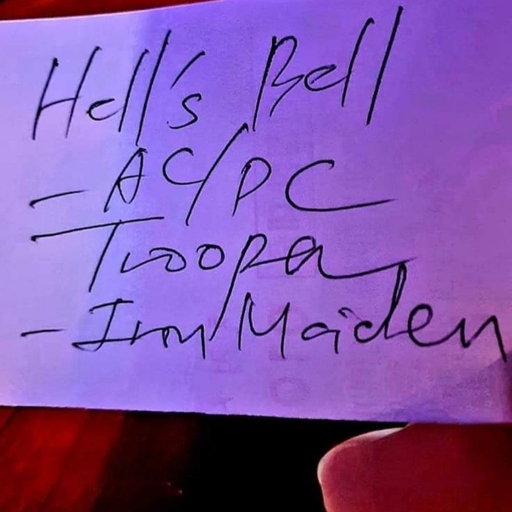 Hell's Bell
- AC/DC
Trooper
- Iron Maiden